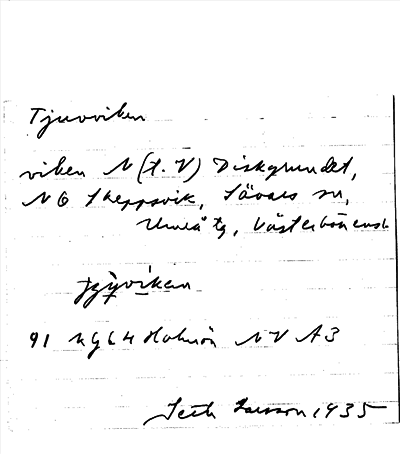 Tjuvviken
viken N (t. V) Diskgrundet,
NO Skeppsvik, Sävars sn,
Umeå tg, Västerbottens l.
91 Holmön NV A3
Seth Larsson 1935